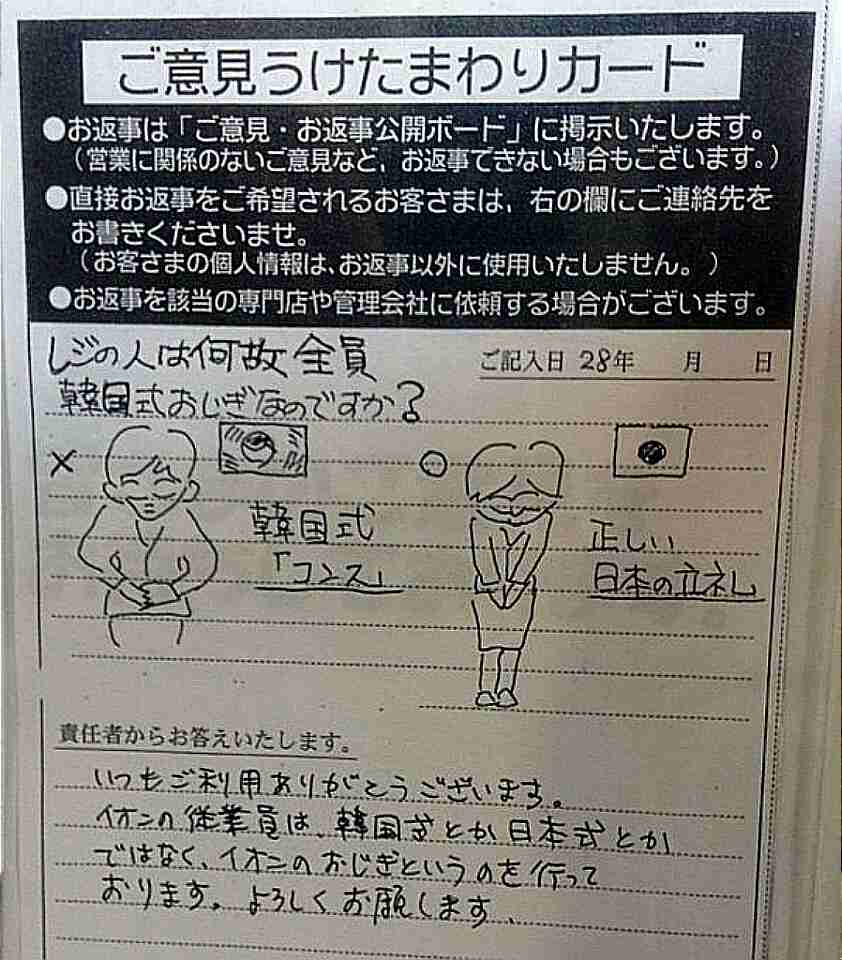 ご意見うけたまわりカード
●お返事は「ご意見・お返事公開ボード」に掲示いたします。
（営業に関係のないご意見など、お返事できない場合もございます。）
●直接お返事をご希望されるお客さまは、右の欄にご連絡先を
お書きくださいませ。
（お客さまの個人情報は、お返事以外に使用いたしません。）
●お返事を該当の専門店や管理会社に依頼する場合がございます。
レジの人は何故全員
ご記入日 28年 月 日
韓国式おじぎなのですか？
×
○
韓国式
「コンス」
正しい
日本の立礼
責任者からお答えいたします。
いつもご利用ありがとうございます。
イオンの従業員は、韓国式とか日本式とか
ではなく、イオンのおじぎというのを行って
おります。よろしくお願します、